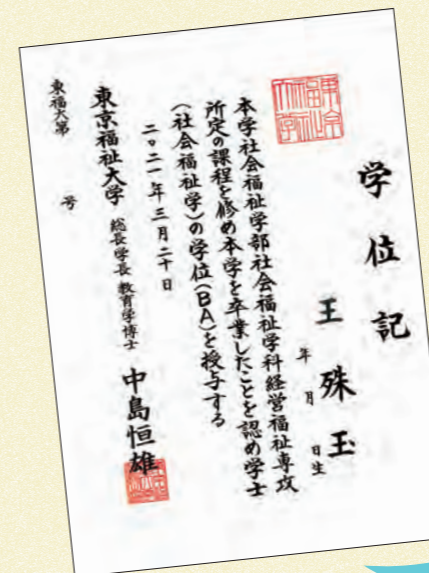 学位記
王殊玉
年月日生
本学社会福祉学部社会福祉学科経営福祉専攻
所定の課程を修め本学を卒業したことを認め学士
(社会福祉学)の学位(BA)を授与する
二〇二一年三月二十日
東京福祉大学 総長学長 教育学博士 中島恒雄
東福大第 号